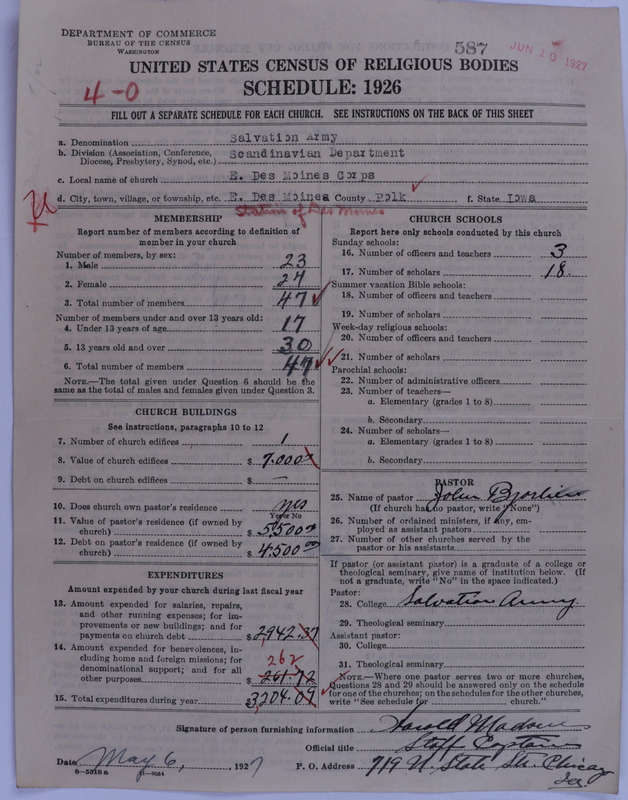 DEPARTMENT OF COMMERCE
BUREAU OF THE CENSUS
WASHINGTON
587
JUN 10 1927
UNITED STATES CENSUS OF RELIGIOUS BODIES
SCHEDULE: 1926
4-0
FILL OUT A SEPARATE SCHEDULE FOR EACH CHURCH. SEE INSTRUCTIONS ON THE BACK OF THIS SHEET
a. Denomination Salvation Army
b. Division (Association, Conference, Diocese, Presbytery, Synod, etc.) Scandinavian Department
c. Local name of church E. Des Moines Corps
d. City, town, village, or township, etc. E. Des Moines County Polk f. State Iowa
Station of Des Moines
MEMBERSHIP
Report number of members according to definition of member in your church
Number of members, by sex:
1. Male 23
2. Female 24
3. Total number of members 47
Number of members under and over 13 years old:
4. Under 13 years of age 17
5. 13 years old and over 30
6. Total number of members 47
NOTE.—The total given under Question 6 should be the same as the total of males and females given under Question 3.
CHURCH BUILDINGS
See instructions, paragraphs 10 to 12
7. Number of church edifices 1
8. Value of church edifices $ 7.000
9. Debt on church edifices $ —
10. Does church own pastor's residence yes
Yes or No
11. Value of pastor's residence (if owned by church) $ 5.500 00
12. Debt on pastor's residence (if owned by church) $ 4.500 00
EXPENDITURES
Amount expended by your church during last fiscal year
13. Amount expended for salaries, repairs, and other running expenses; for improvements or new buildings; and for payments on church debt $ 2942.37
14. Amount expended for benevolences, including home and foreign missions; for denominational support; and for all other purposes $ 261.72
262
15. Total expenditures during year $ 3204.09
CHURCH SCHOOLS
Report here only schools conducted by this church
Sunday schools:
16. Number of officers and teachers 3
17. Number of scholars 18
Summer vacation Bible schools:
18. Number of officers and teachers
19. Number of scholars
Week-day religious schools:
20. Number of officers and teachers
21. Number of scholars
Parochial schools:
22. Number of administrative officers
23. Number of teachers—
a. Elementary (grades 1 to 8)
b. Secondary
24. Number of scholars—
a. Elementary (grades 1 to 8)
b. Secondary
PASTOR
25. Name of pastor John
(If church has no pastor, write "None")
26. Number of ordained ministers, if any, employed as assistant pastors
27. Number of other churches served by the pastor or his assistants
If pastor (or assistant pastor) is a graduate of a college or theological seminary, give name of institution below. (If not a graduate, write "No" in the space indicated.)
Pastor:
28. College Salvation Army
29. Theological seminary
Assistant pastor:
30. College
31. Theological seminary
NOTE.—Where one pastor serves two or more churches, Questions 28 and 29 should be answered only on the schedule for one of the churches; on the schedules for the other churches, write "See schedule for church."
Signature of person furnishing information Harold Madsen
Official title Staff Captain
Date May 6, 1927
P. O. Address 719 N. State Str. Chicago
Ill.
8—5518 a